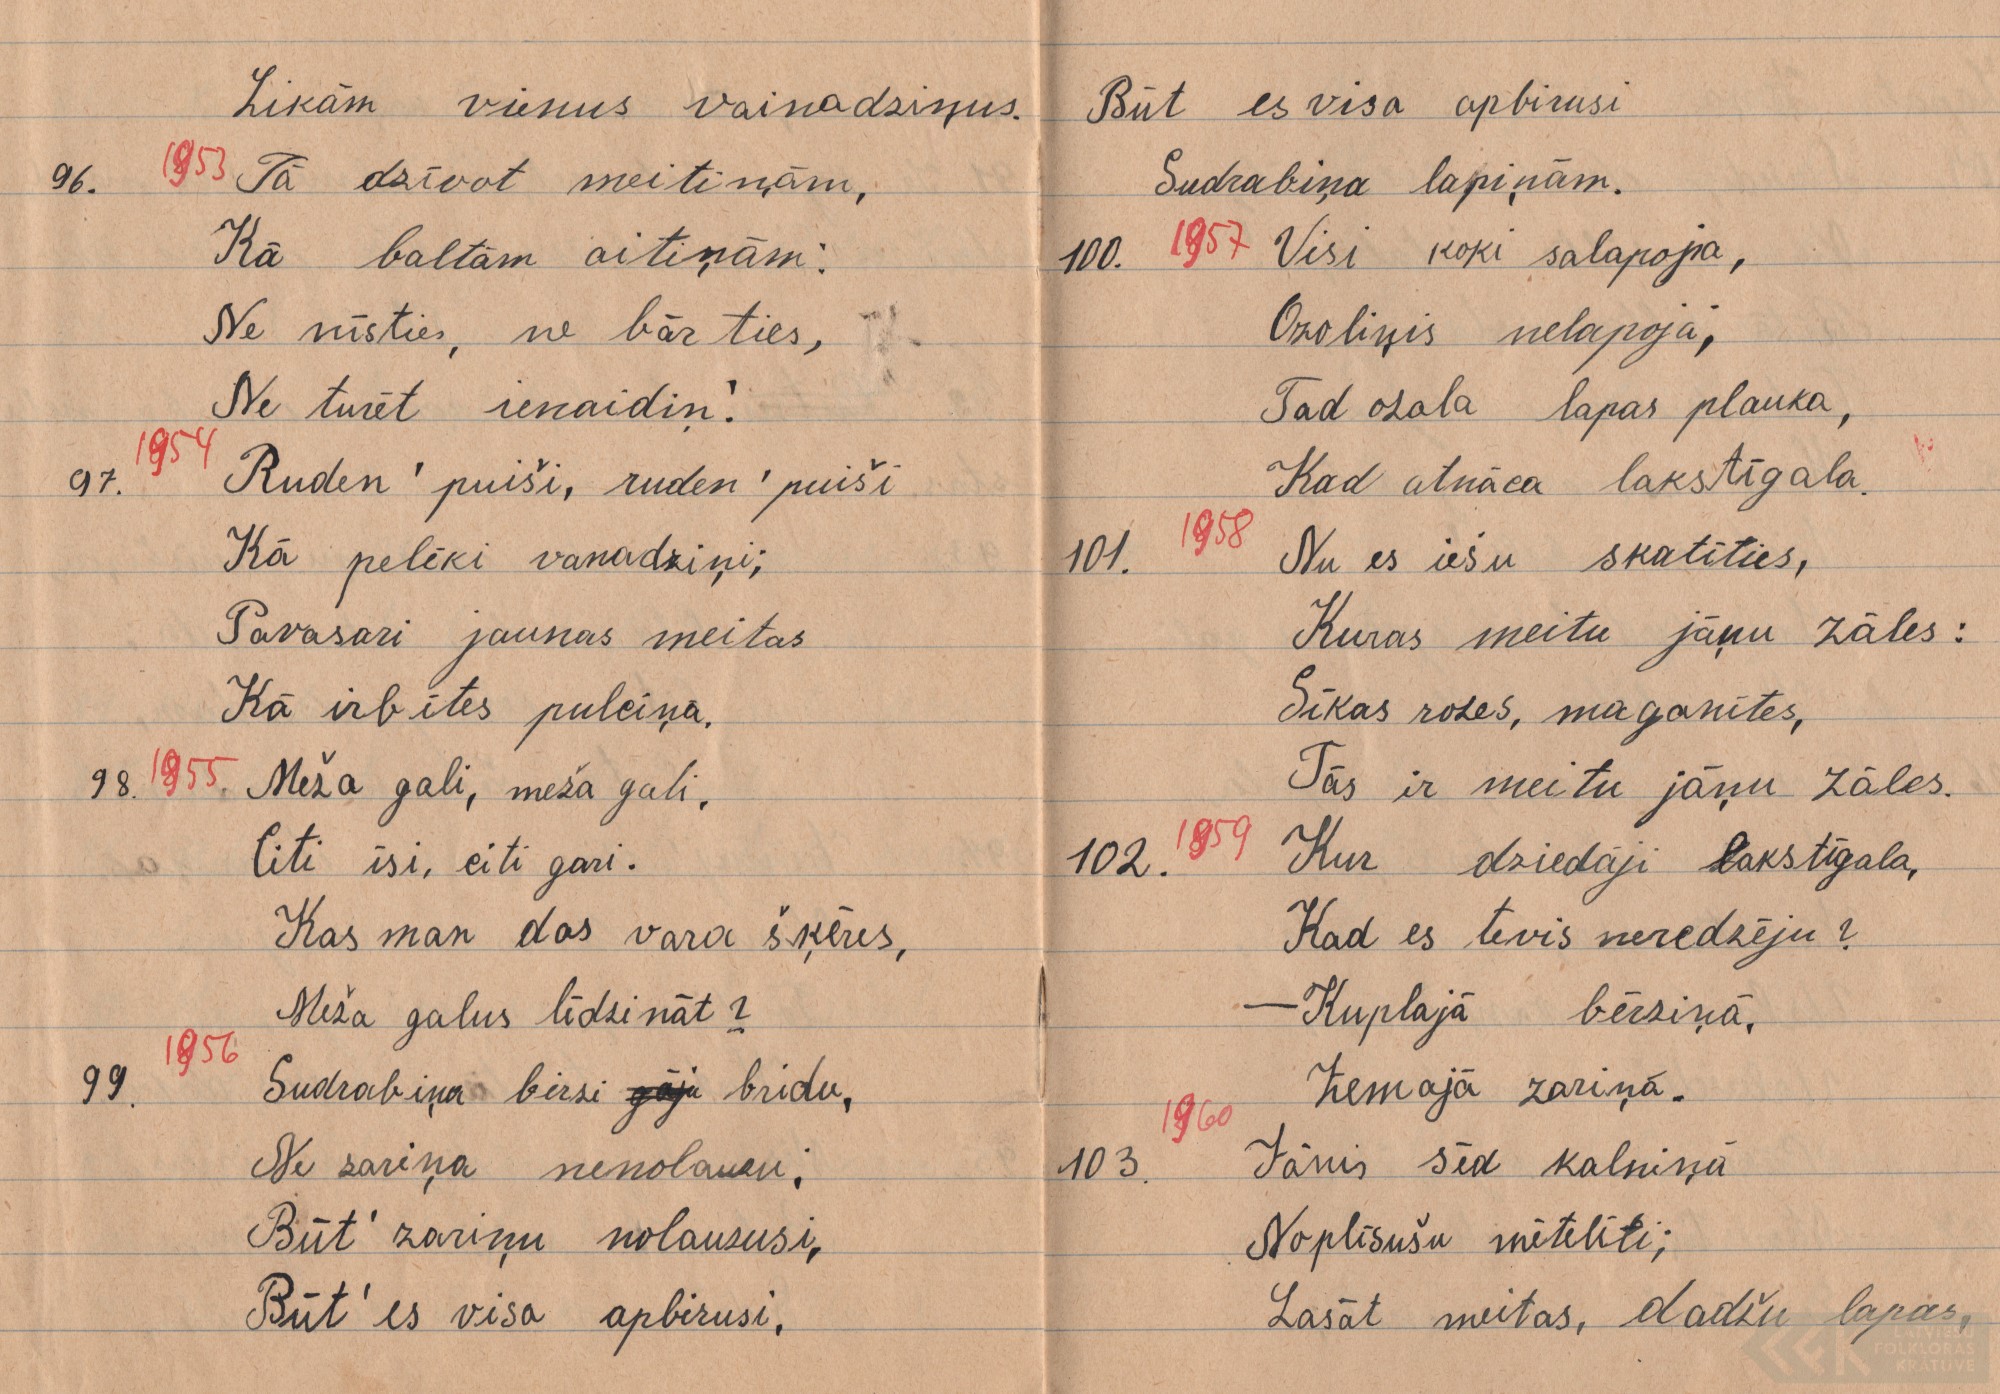 Likām vienus vainadziņus.
96. 1953 Tā dzīvot meitiņām,
Kā baltām aitiņām:
Ne nīsties, ne bārties,
Ne turēt ienaidiņ'.
97. 1954 Ruden' puiši, ruden' puiši
Kā pelēki vanadziņi;
Pavasari jaunas meitas
Kā irbītes pulciņa.
98. 1955. Meža gali, meža gali,
Citi īsi, citi gari.
Kas man dos vara šķēres,
Meža galus līdzināt?
99. 1956 Sudrabiņa birzi gāju bridu,
Ne zariņa nenolauzu;
Būt' zariņu nolauzusi,
Būt' es visa apbirusi,
Būt es visa apbirusi
Sudrabiņa lapiņām.
100. 1957 Visi koki salapoja,
Ozoliņis nelapojā,
Tad ozola lapas plauka,
Kad atnāca lakstīgala.
101. 1958 Nu es iešu skatīties,
Kuras meitu jāņu zāles:
Sīkas rozes, maganītes,
Tās ir meitu jāņu zāles.
102. 1959 Kur dziedāji lakstīgala,
Kad es tevis neredzēju?
—Kuplajā bērziņā,
Zemajā zariņā.
103. 1960 Jānis sēd kalniņā
Noplīsušu mētelīti;
Lasāt meitas, dadžu lapas,
LATVIEŠU
FOLKLORAS
KRĀTUVE